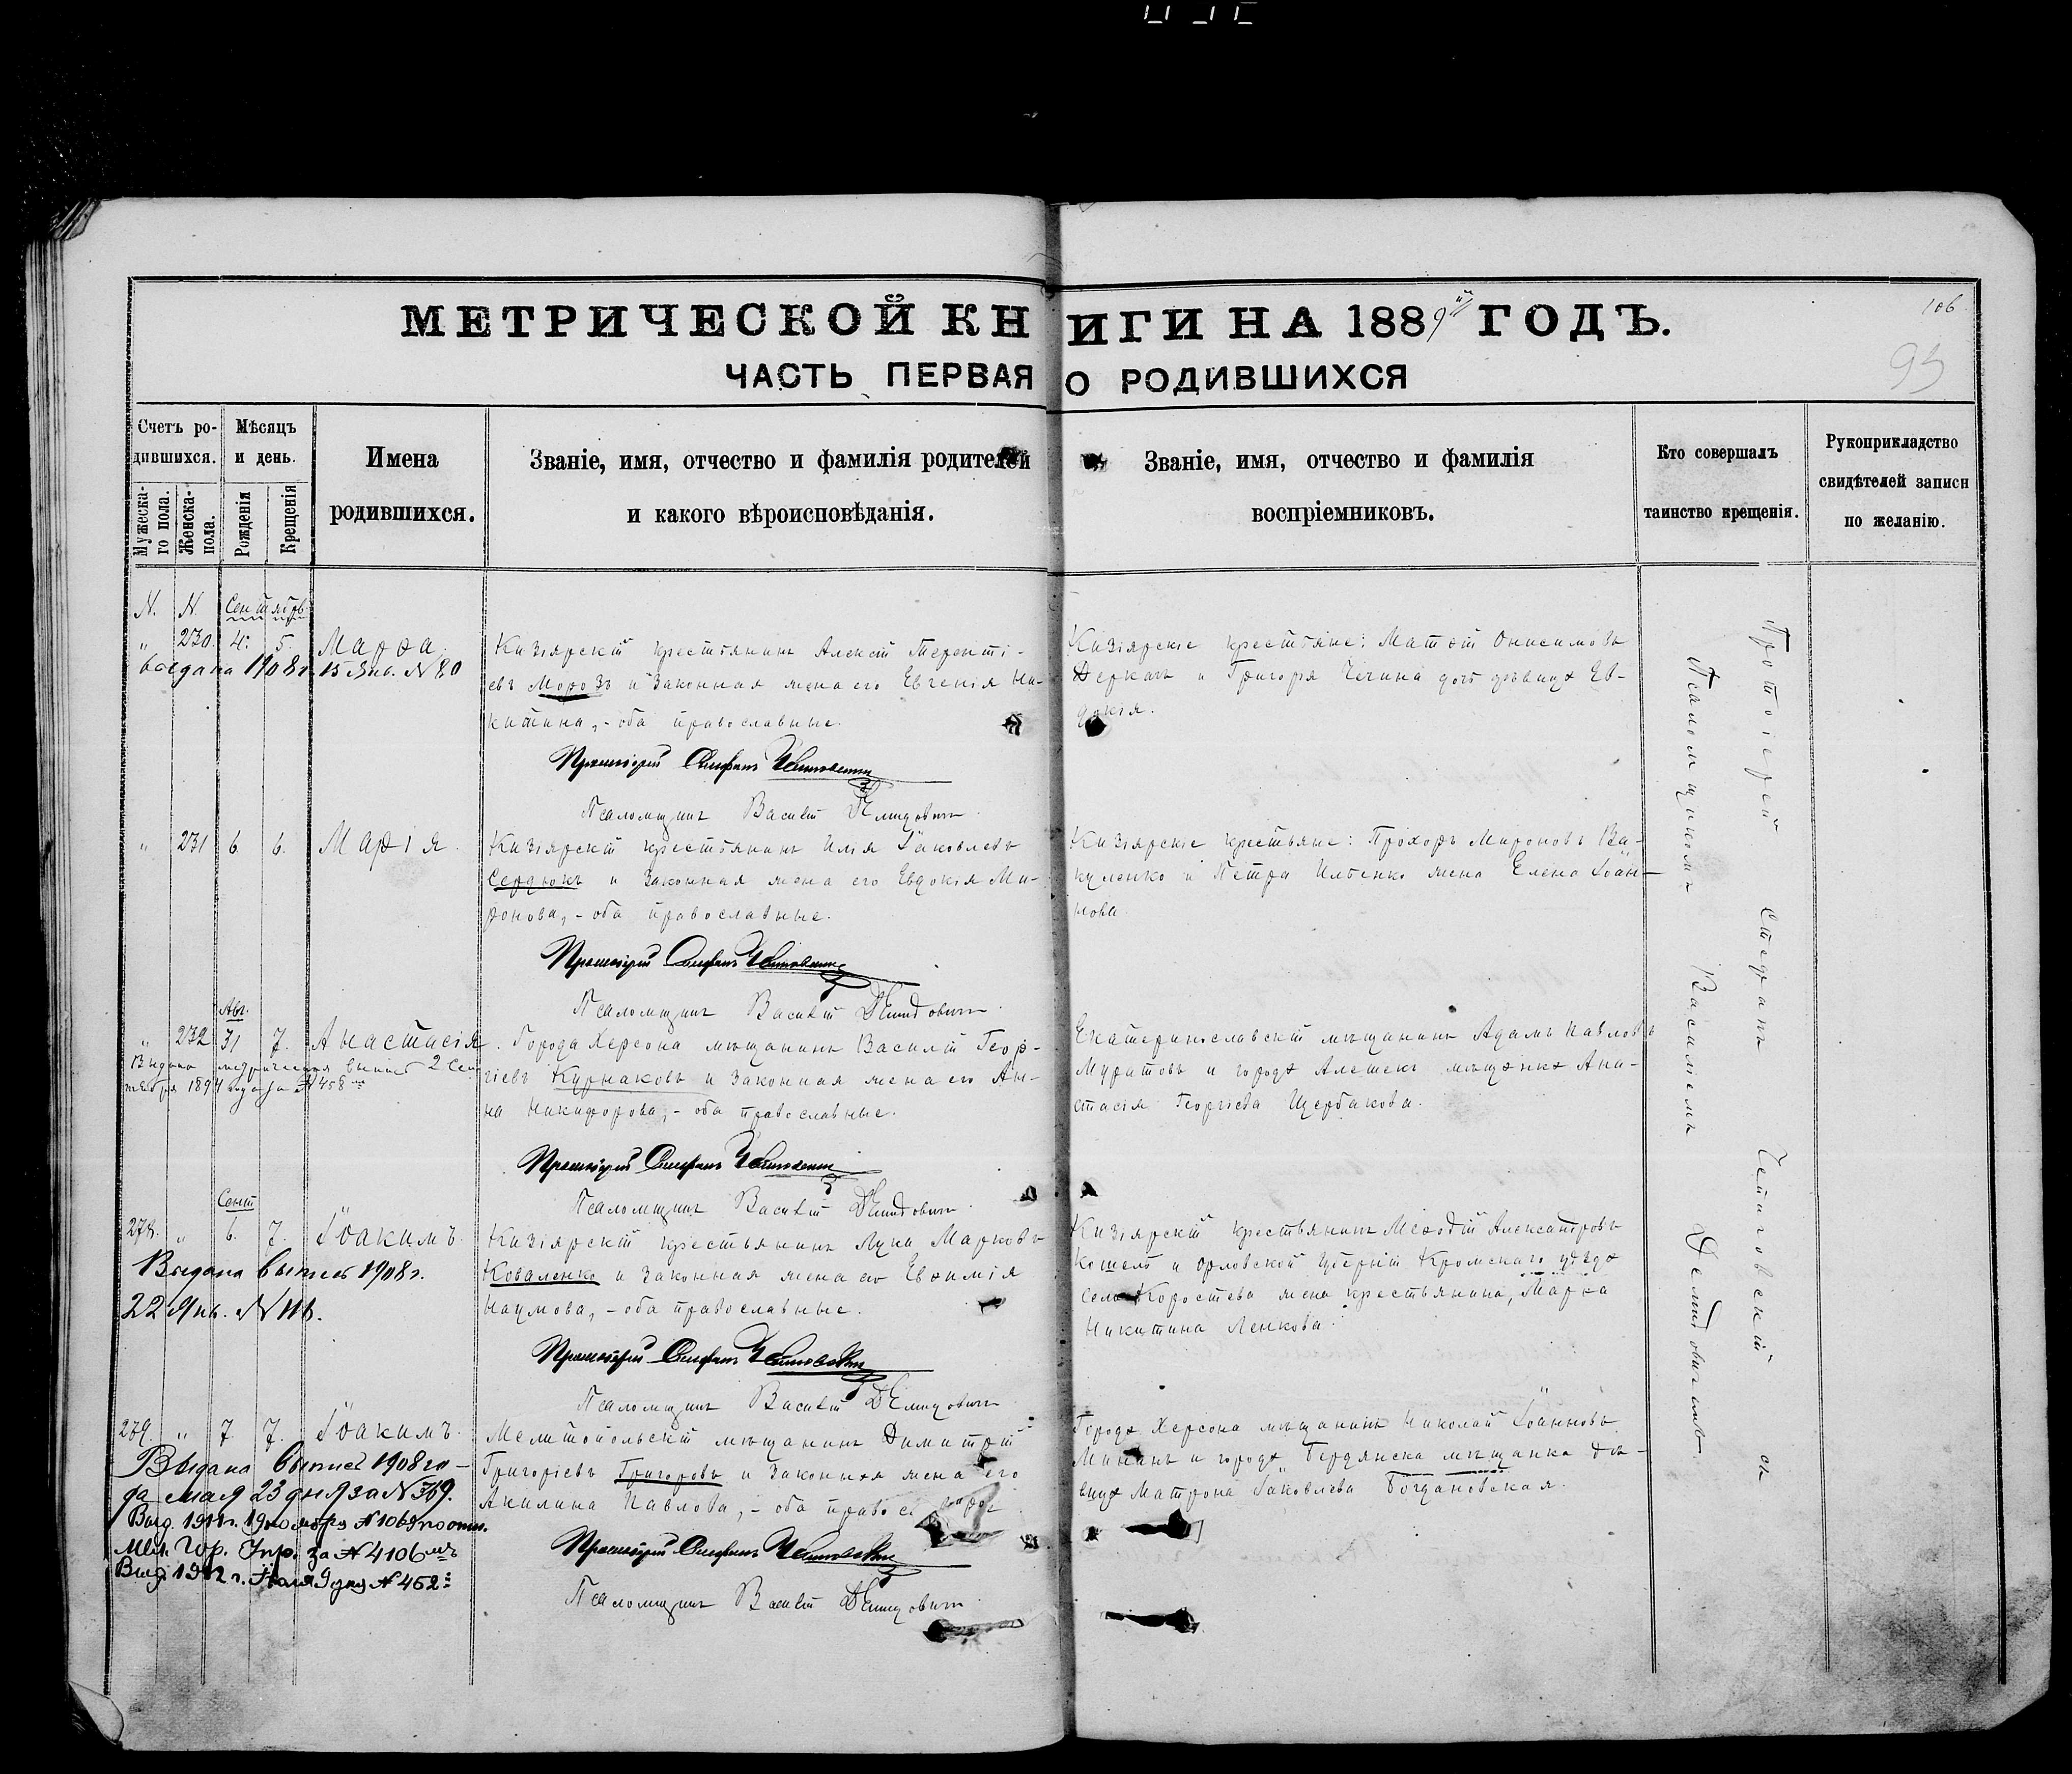 МЕТРИЧЕСКОЙ КНИГИ НА 1889й ГОДЪ.
106
93
ЧАСТЬ ПЕРВАЯ О РОДИВШИХСЯ
Счетъ ро-
дившихся.
Мужеска-
го пола.
Женска-
пола.
Мѣсяцъ
и день.
Рожденія
Крещенія
Имена
родившихся.
Званіе, имя, отчество и фамилія родителей
и какого вѣроисповѣданія.
Званіе, имя, отчество и фамилія
воспріемниковъ.
Кто совершалъ
таинство крещенія.
Рукоприкладство
свидѣтелей записи
по желанію.
N. N. Сентябрь
" 230. 4. 5. Марѳа.
выдана 1908 г. 15 Янв. N 80
Кизіярскій крестьянинъ Алексѣй Теренті-
евъ Морозъ и законная жена его Евгенія Ни-
китина, - оба православные.
Протоіерей Стефанъ
Псаломщикъ Василій Демидовичъ
Кизіярскіе крестьяне: Матѳій Онисимовъ
Деркачъ и Григорія Чечина дочь дѣвица Ев-
докія.
" 231 6 6. Марія.
Кизіярскій крестьянинъ Илія Іаковлевъ
Сердюкъ и законная жена его Евдокія Ми-
ронова, - оба православные.
Протоіерей Стефанъ
Псаломщикъ Василій Демидовичъ
Кизіярскіе крестьяне: Прохоръ Мироновъ Ва-
куленко и Петра Ильенко жена Елена Іоан-
нова.
Авг.
" 232 31 7. Анастасія.
Выдана метрическая выпись 2 Сен
тября 1894 года за N 458
Города Херсона мѣщанинъ Василій Геор-
гіевъ Курнаковъ и законная жена его Ан-
на Никифорова, - оба православные.
Протоіерей Стефанъ
Псаломщикъ Василій Демидовичъ
Екатеринославскій мѣщанинъ Адамъ Павловъ
Муратовъ и города Алешекъ мѣщанка Ана-
стасія Георгіева Щербакова.
Сент
278. " 6. 7. Іоакимъ.
Выдана выпись 1908 г.
22 Янв. N 116.
Кизіярскій крестьянинъ Лука Марковъ
Коваленко и законная жена его Евѳимія
Наумова, - оба православные.
Протоіерей Стефанъ
Псаломщикъ Василій Демидовичъ
Кизіярскій крестьянинъ Меѳодій Александровъ
Кошель и Орловской губерніи Кромскаго уѣзда
села Коростева жена крестьянина, Марѳа
Никитина Ленкова.
279. " 7 7. Іоакимъ.
Выдана выпись 1908 го-
да мая 23 дня за N 369.
Выд. 1911 г. 19 ноября N 1069 по отн.
Мел. Гор. Упр. за N 4106
Выд. 1912 г. Іюля 9 дня N 452
Мелитопольскій мѣщанинъ Димитрій
Григоріевъ Григоровъ и законная жена его
Акилина Павлова, - оба правосл
Протоіерей Стефанъ
Псаломщикъ Василій Демидовичъ
Города Херсона мѣщанинъ Николай Іоанновъ
Мининъ и города Бердянска мѣщанка дѣ-
вица Матрона Іаковлева Богдановская.
Протоіерей Стефанъ Чейновскій съ
Псаломщикомъ Василіемъ Демидовичемъ.